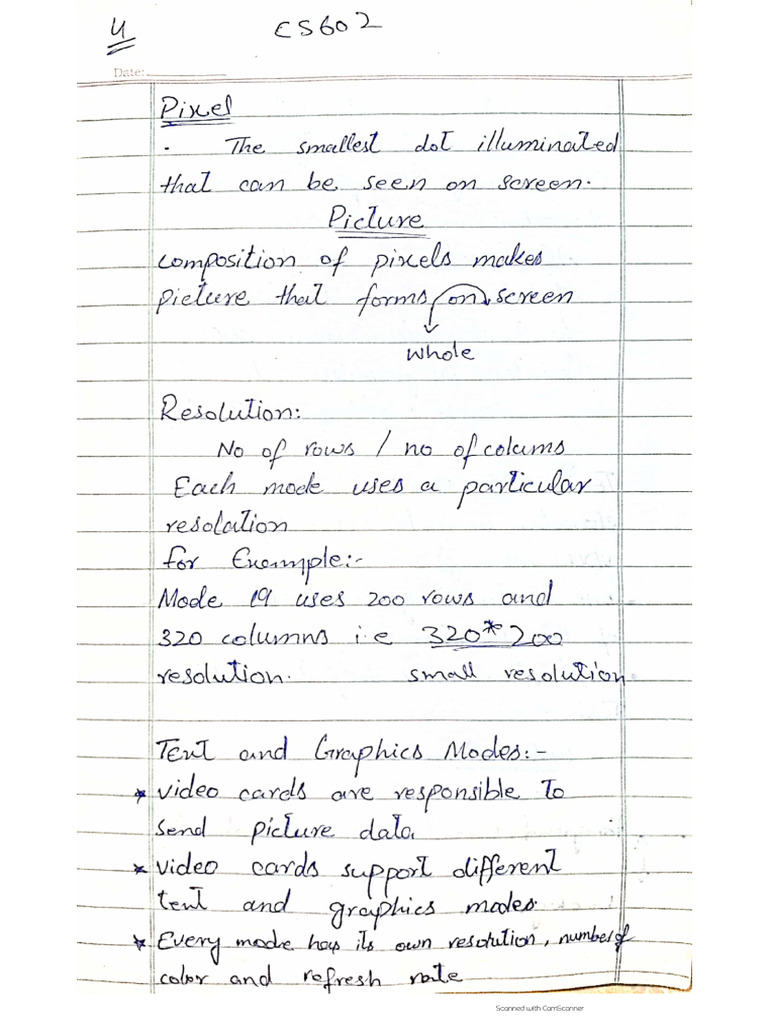 4
CS602
Date:
Pixel
. The smallest dot illuminated
that can be seen on screen.
Picture
composition of pixels makes
picture that forms on screen
whole
Resolution:
No of rows / no of colums
Each mode uses a particular
resolation
for Example:-
Mode 19 uses 200 rows and
320 columns i.e 320*200
resolution. small resolution
Text and Graphics Modes:-
* video cards are responsible to
send picture data
* video cards support different
text and graphics modes.
* Every mode has its own resolution, number of
color and refresh rate
Scanned with CamScanner